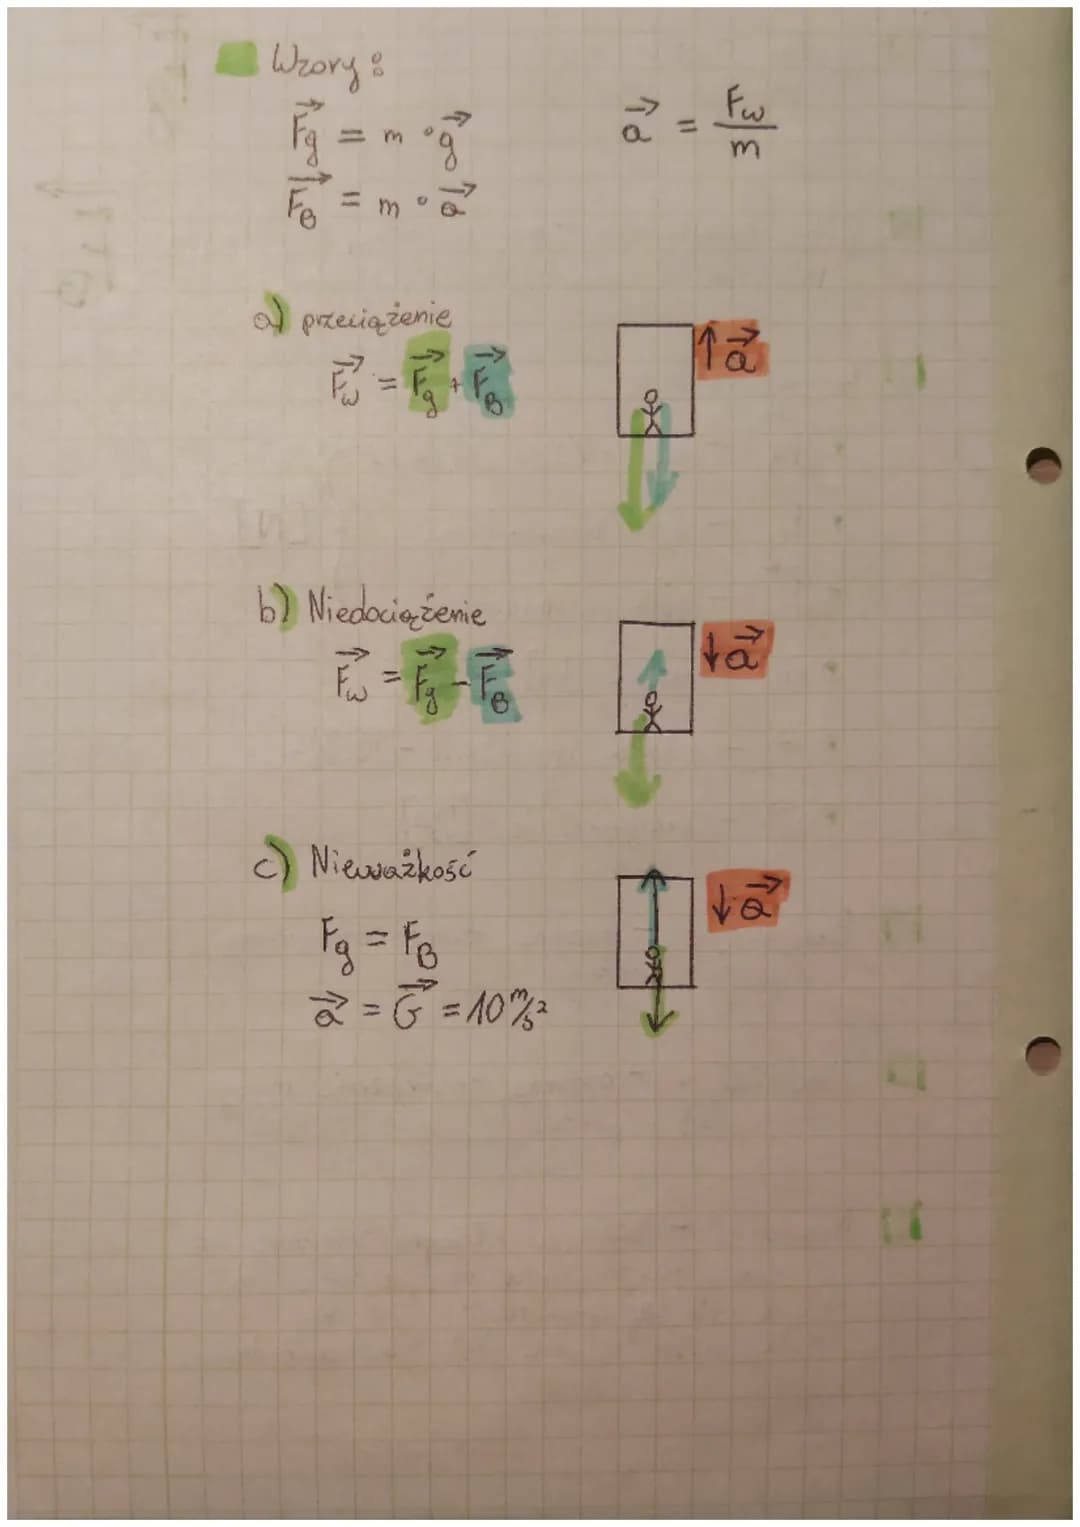 Wzory:
F⃗g = m · g⃗
a⃗ = Fw/m
F⃗B = m · a⃗
a) przeciążenie
F⃗w = F⃗g + F⃗B
↑a⃗
b) Niedociążenie
F⃗w = F⃗g - F⃗B
↓a⃗
c) Nieważkość
↓a⃗
Fg = FB
a⃗ = G⃗ = 10 m/s²